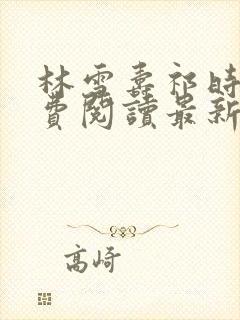 林雪壽祁時
費閱讀最新
高崎